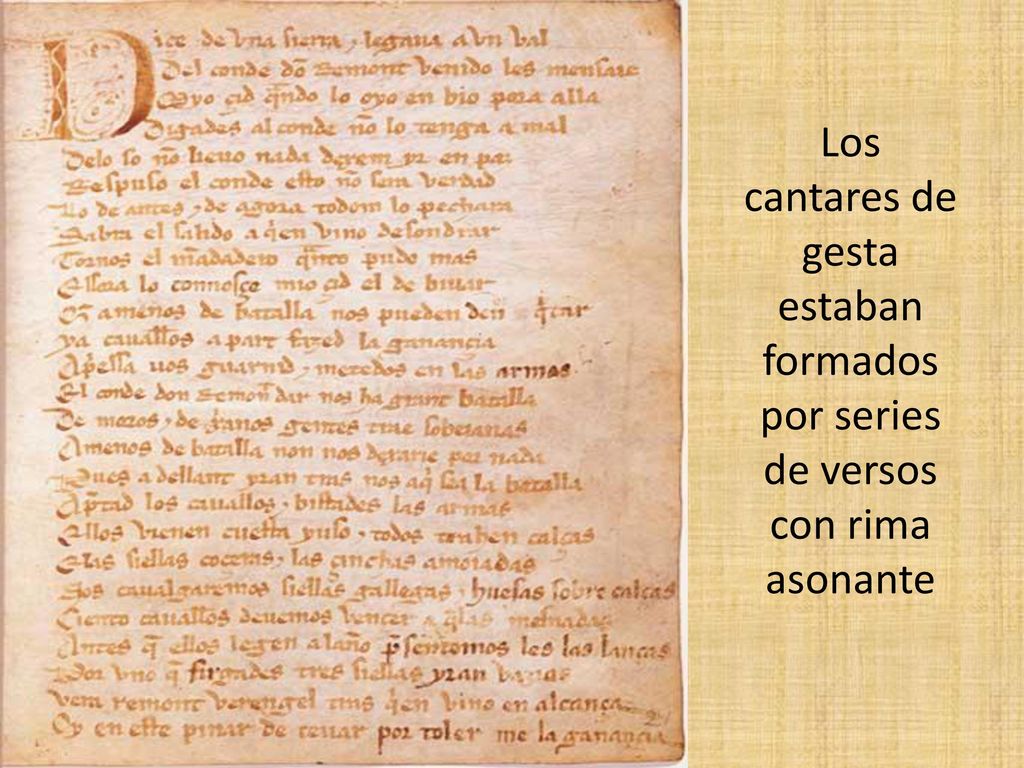 Dice de una sierra ⁊ legaua a un val
Del conde dõ Remont venido les mensaie
Myo çid q̃ndo lo oyo en bio pora alla
Digades al conde nõ lo tenga a mal
Delo so nõ lieuo nada dexem yr en paz
Respuso el conde esto nõ sera verdad
Lo de antes ⁊ de agora todom lo pechara
Sabra el salido a q̃en vino desondrar
Tornos el mãdadero q̃nto pudo mas
Essora lo connosçe mio çid el de biuar
Q̃ a menos de batalla nos pueden den q̃tar
ya cauallos a part fazed la ganançia
Ap̃essa uos guarnid ⁊ metedos en las armas
El conde don Remont dar nos ha grant batalla
De moros ⁊ de xp̃anos gentes trae sobeianas
Amenos de batalla non nos dexarie por nada
Pues adellant yran tras nos aq̃ sea la batalla
Ap̃tad los cauallos ⁊ bistades las armas
Ellos vienen cuesta yuso ⁊ todos trahen calças
Elas siellas coçeras ⁊ las çinchas amoiadas
Nos caualgaremos siellas gallegas ⁊ huesas sobre calças
Çiento cauallos deuemos vençer a q̃las mesnadas
Antes q̃ ellos legen alaño p̃sentemos les las lanças
Por vno q̃ firgades tres siellas yran vazias
Vera remont verengel tras q̃en vino en alcança
Oy en este pinar de teuar por toler me la ganançia
Los
cantares de
gesta
estaban
formados
por series
de versos
con rima
asonante